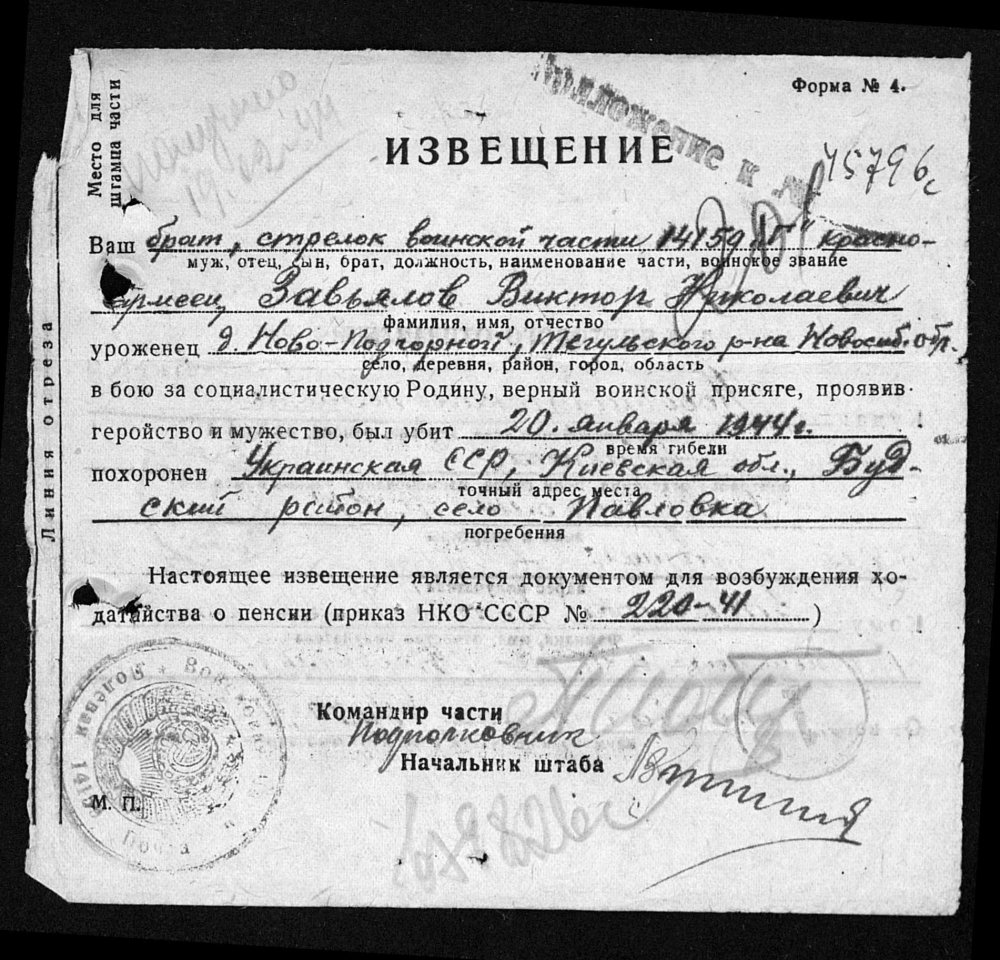 Форма № 4.
Место для
штампа части
Приложение к №
15796с
ИЗВЕЩЕНИЕ
Ваш брат, стрелок воинской части 14159 красно-
муж, отец, сын, брат, должность, наименование части, воинское звание
армеец Завьялов Виктор Николаевич
фамилия, имя, отчество
уроженец д. Ново-Подгорной, Тегульского р-на Новосиб. обл.
село, деревня, район, город, область
в бою за социалистическую Родину, верный воинской присяге, проявив
геройство и мужество, был убит 20. января 1944 г.
время гибели
похоронен Украинская ССР, Киевская обл., Буд-
точный адрес места
ский район, село Павловка
погребения
Линия отреза
Настоящее извещение является документом для возбуждения хо-
датайства о пенсии (приказ НКО СССР № 220-41)
Командир части
Подполковник
Начальник штаба
М. П.
Полевая Почта